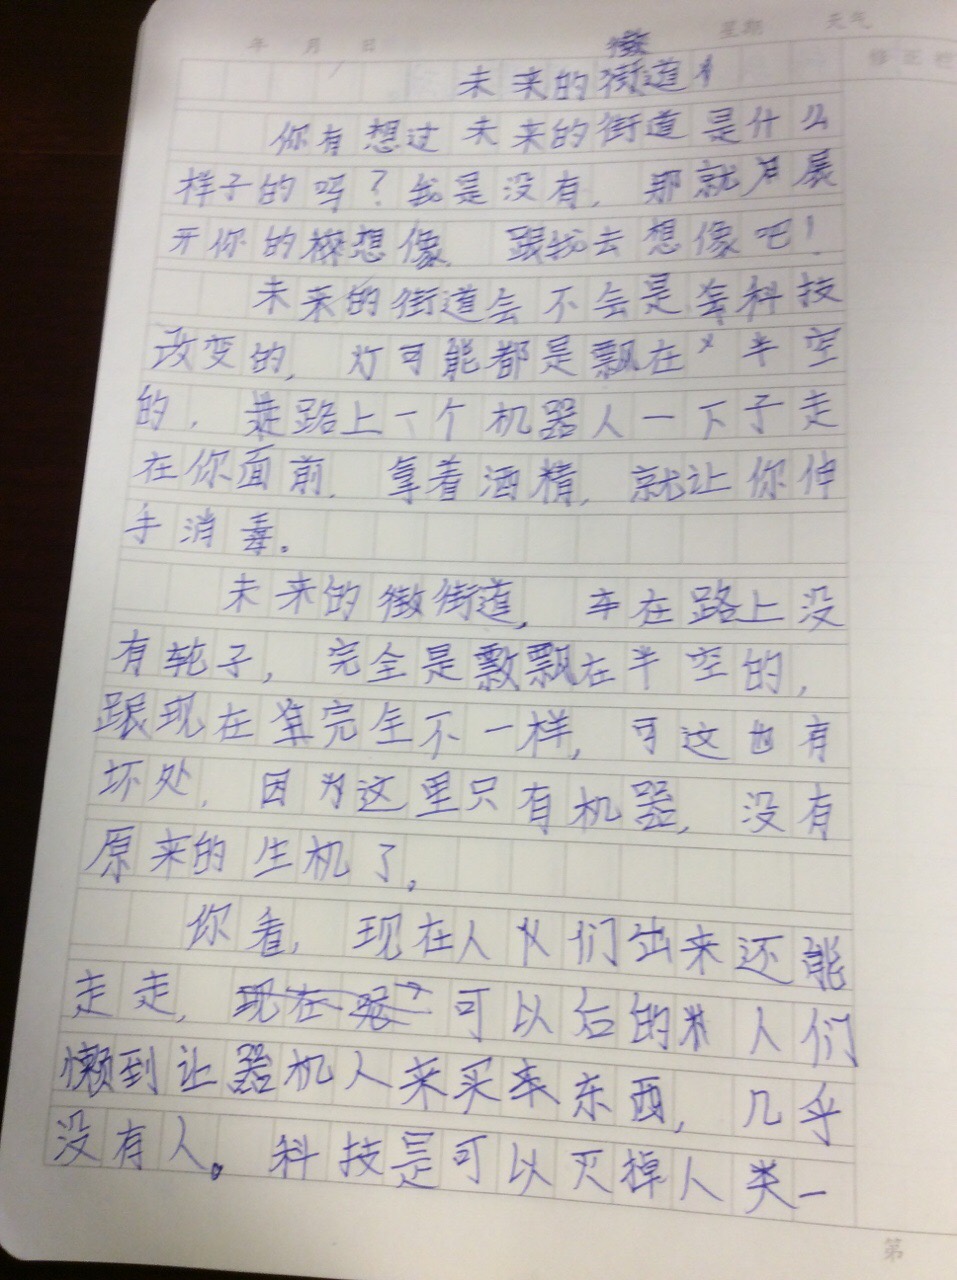 年 月 日 星期 天气
修正栏
未来的街道
你有想过未来的街道是什么
样子的吗？我是没有，那就展
开你的想像，跟我去想像吧！
未来的街道会不会是科技
改变的，灯可能都是飘在半空
的，走路上一个机器人一下子走
在你面前，拿着酒精，就让你伸
手消毒。
未来的街道，车在路上没
有轮子，完全是飘在半空的，
跟现在完全不一样，可这也有
坏处，因为这里只有机器，没有
原来的生机了。
你看，现在人们出来还能
走走，可以后的人们
懒到让器机人来买东西，几乎
没有人。科技是可以灭掉人类一
第